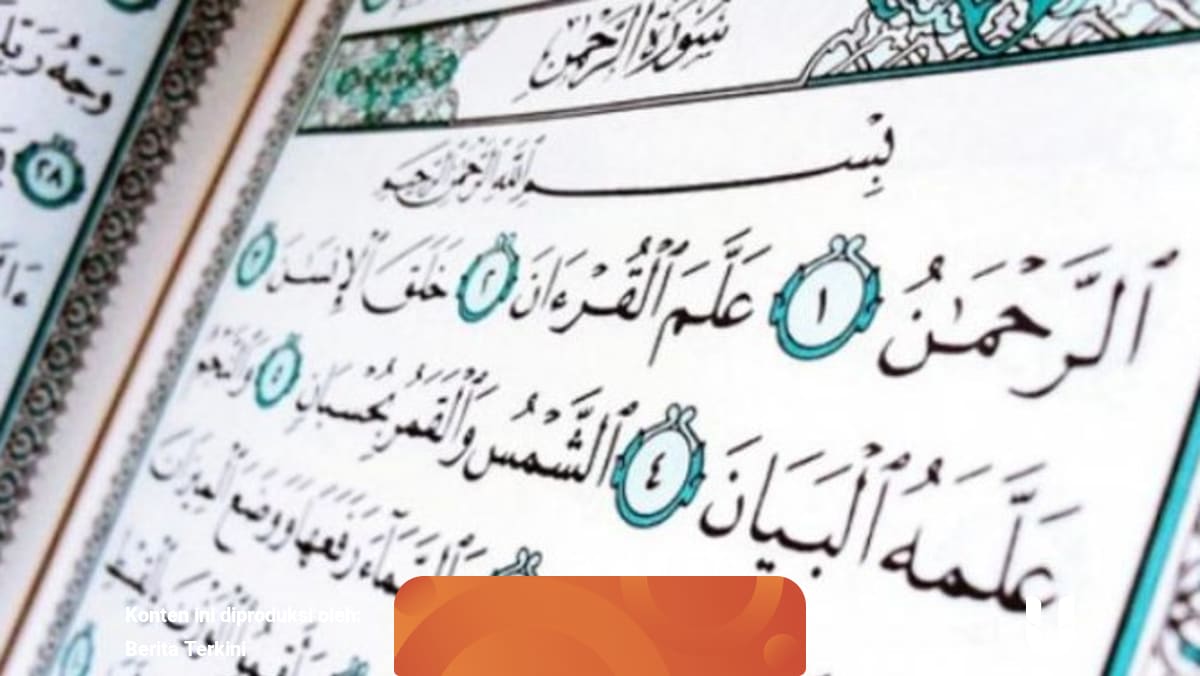 سُورَةُ الرَّحْمٰن
بِسْمِ ٱللَّهِ ٱلرَّحْمَٰنِ ٱلرَّحِيمِ
ٱلرَّحْمَٰنُ ١ عَلَّمَ ٱلْقُرْءَانَ ٢ خَلَقَ ٱلْإِنسَٰنَ ٣
عَلَّمَهُ ٱلْبَيَانَ ٤ ٱلشَّمْسُ وَٱلْقَمَرُ بِحُسْبَانٍ ٥ وَٱلنَّجْمُ
وَٱلسَّمَآءَ رَفَعَهَا وَوَضَعَ ٱلْمِيزَانَ
وَجْهُ رَبِّكَ
٢٨
Konten ini diproduksi oleh:
Berita Terkini